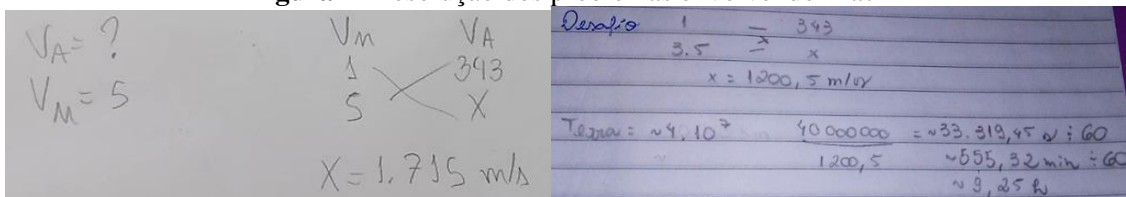 V_A = ?
V_M = 5
V_M V_A
1 343
5 X
X = 1.715 m/s
Desafio 1 — 343
3.5 — x
x = 1200,5 m/s
Terra = ~4.10⁷ 40000000 = ~33.319,45 s ÷ 60
1200,5 ~555,32 min ÷ 60
~9,25 h